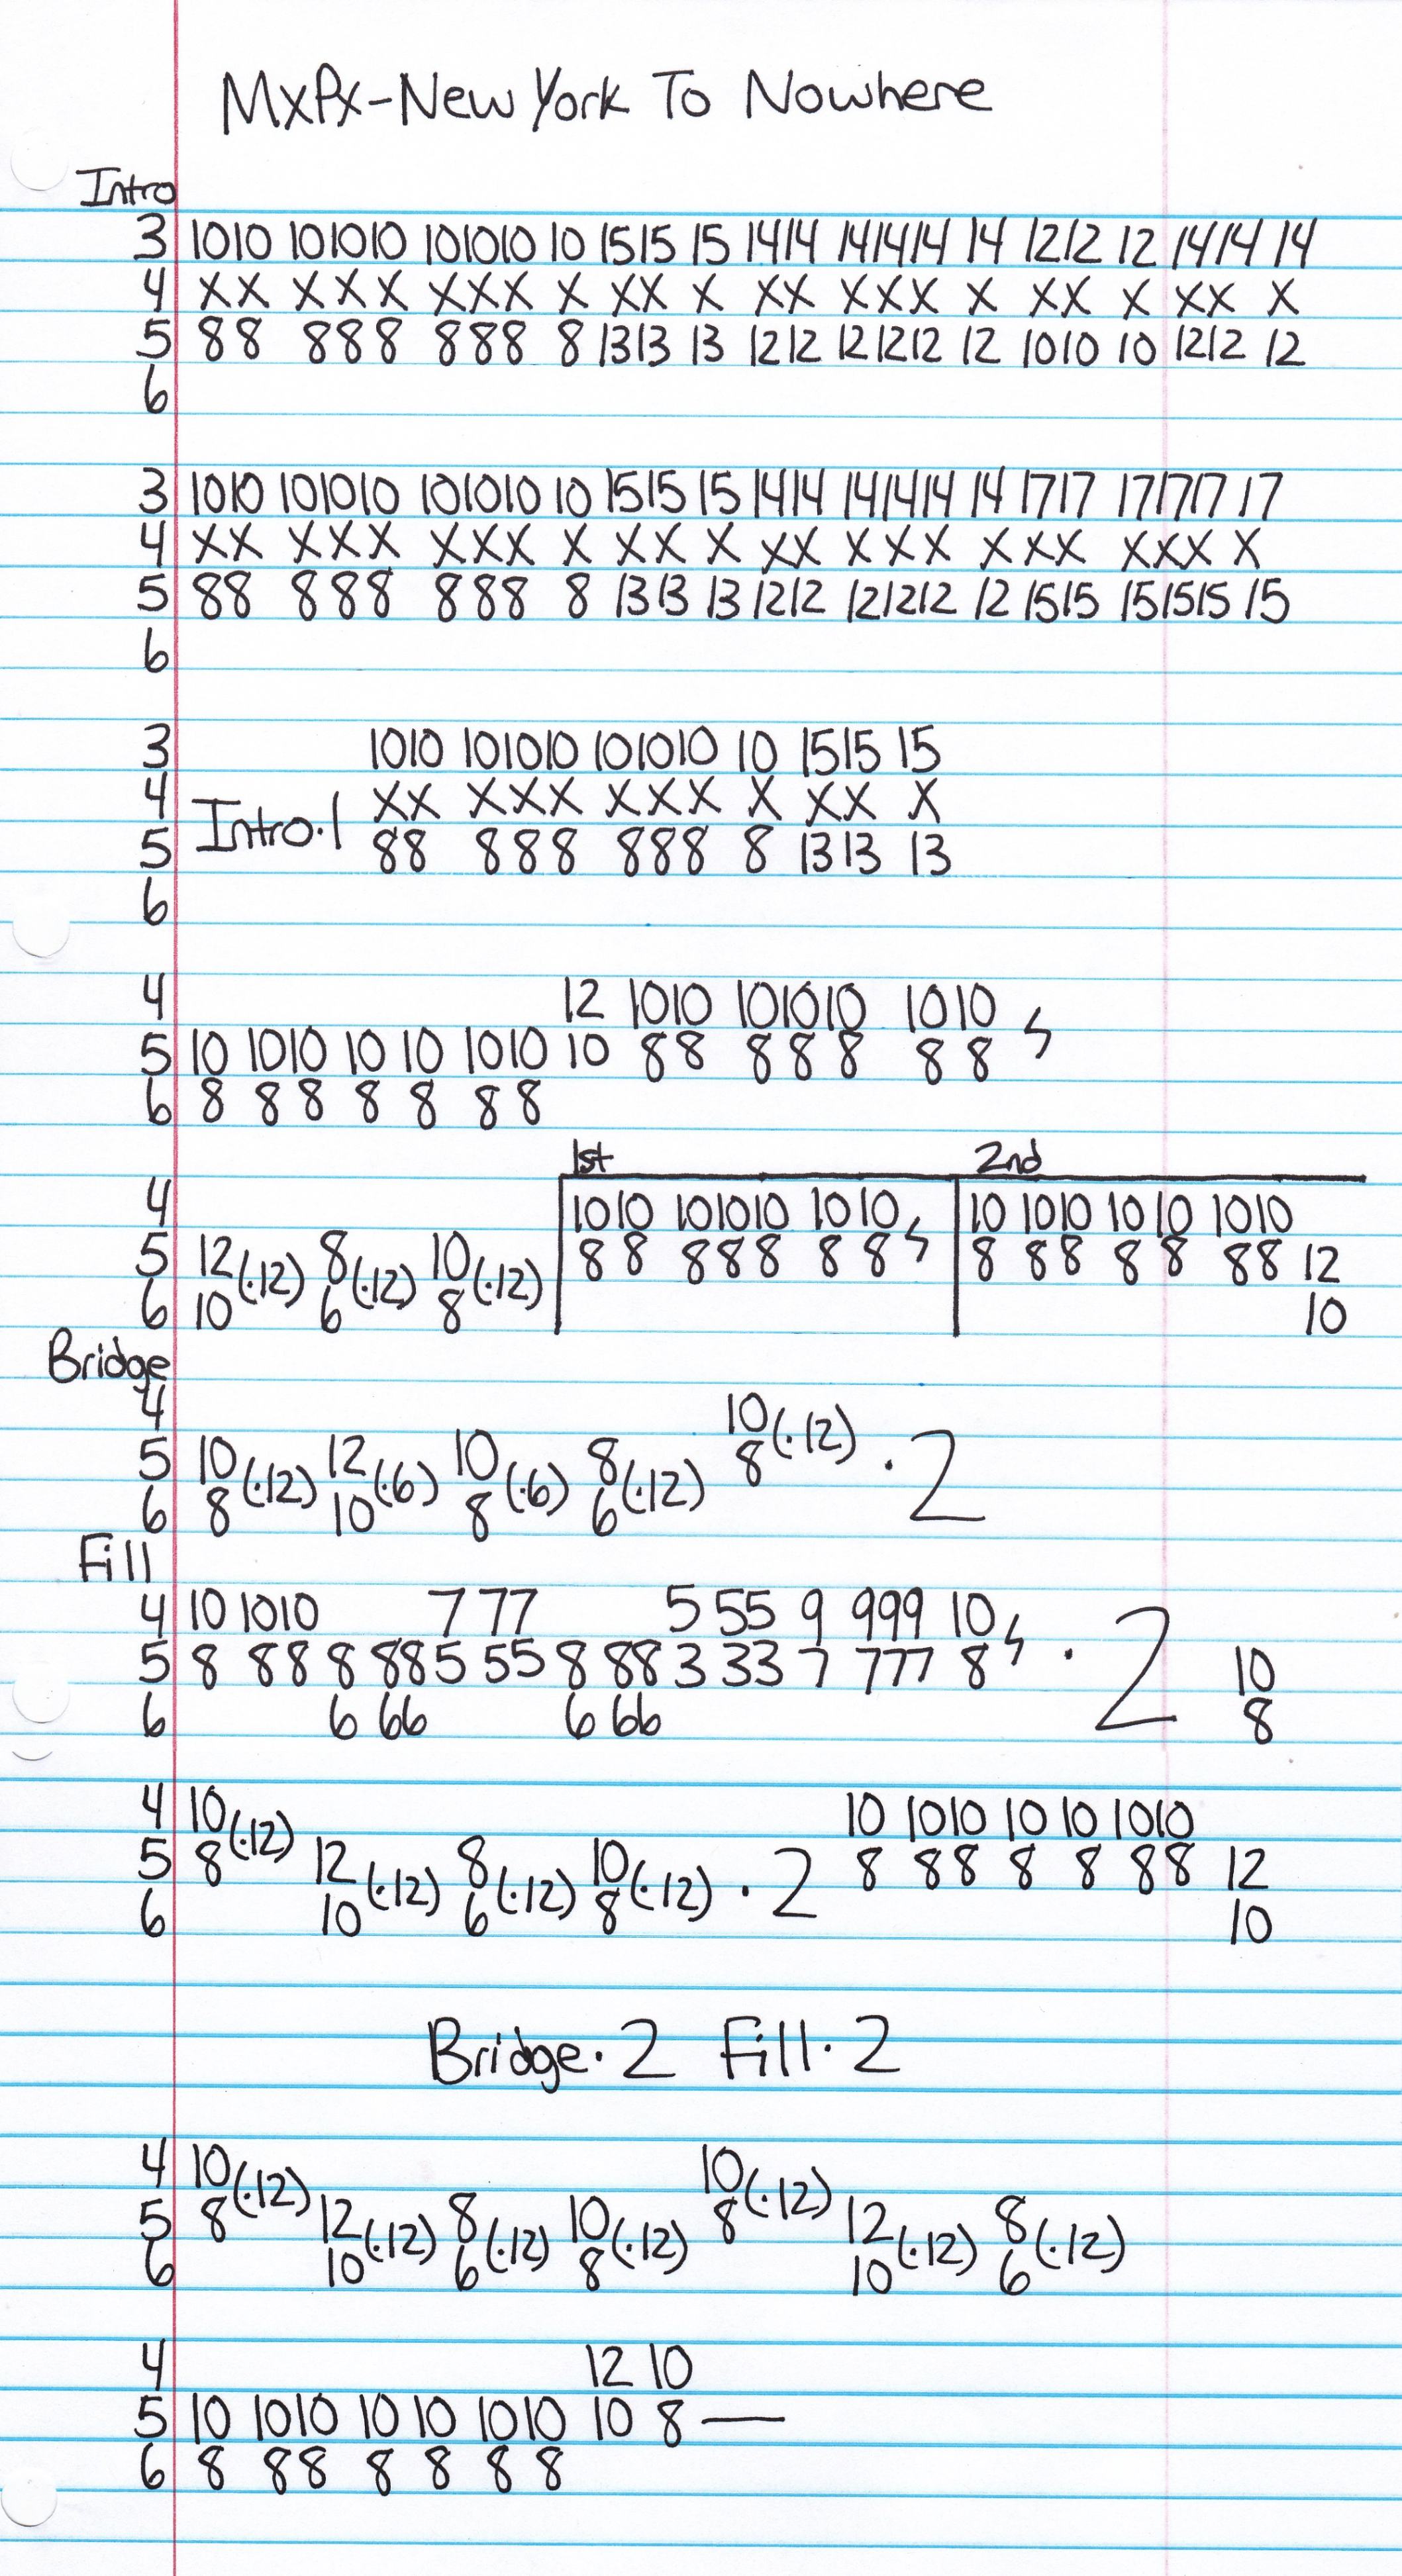 MxPx-New York To Nowhere
Intro
3 1010 101010 101010 10 1515 15 1414 141414 14 1212 12 1414 14
4 XX XXX XXX X XX X XX XXX X XX X XX X
5 88 888 888 8 1313 13 1212 121212 12 1010 10 1212 12
6
3 1010 101010 101010 10 1515 15 1414 141414 14 1717 171717 17
4 XX XXX XXX X XX X XX XXX XXX XXX X
5 88 888 888 8 1313 13 1212 121212 12 1515 151515 15
6
3 1010 101010 101010 10 1515 15
4 XX XXX XXX X XX X
Intro.1
5 88 888 888 8 1313 13
6
4 12 1010 101010 1010
5 10 1010 10 10 1010 10 88 888 88
6 8 88 8 8 88
1st 2nd
4 1010 101010 1010 10 1010 10 10 1010
5 12(·12) 8(·12) 10(·12) 88 888 88 8 88 8 8 88 12
6 10 6 8 10
Bridge
4 10(·12)
5 10(·12) 12(·6) 10(·6) 8(·12) 8 · 2
6 8 10 8 6
Fill
4 10 1010 7 77 5 55 9 999 10
5 8 88 8 88 5 55 8 88 3 33 7 777 8 · 2 10
6 6 66 6 66 8
4 10(·12) 10 1010 10 10 1010
5 8 12(·12) 8(·12) 10(·12) · 2 8 88 8 8 88 12
6 10 6 8 10
Bridge · 2 Fill · 2
4 10(·12) 10(·12)
5 8 12(·12) 8(·12) 10(·12) 8 12(·12) 8(·12)
6 10 6 8 10 6
4 12 10
5 10 1010 10 10 1010 10 8 —
6 8 88 8 8 88